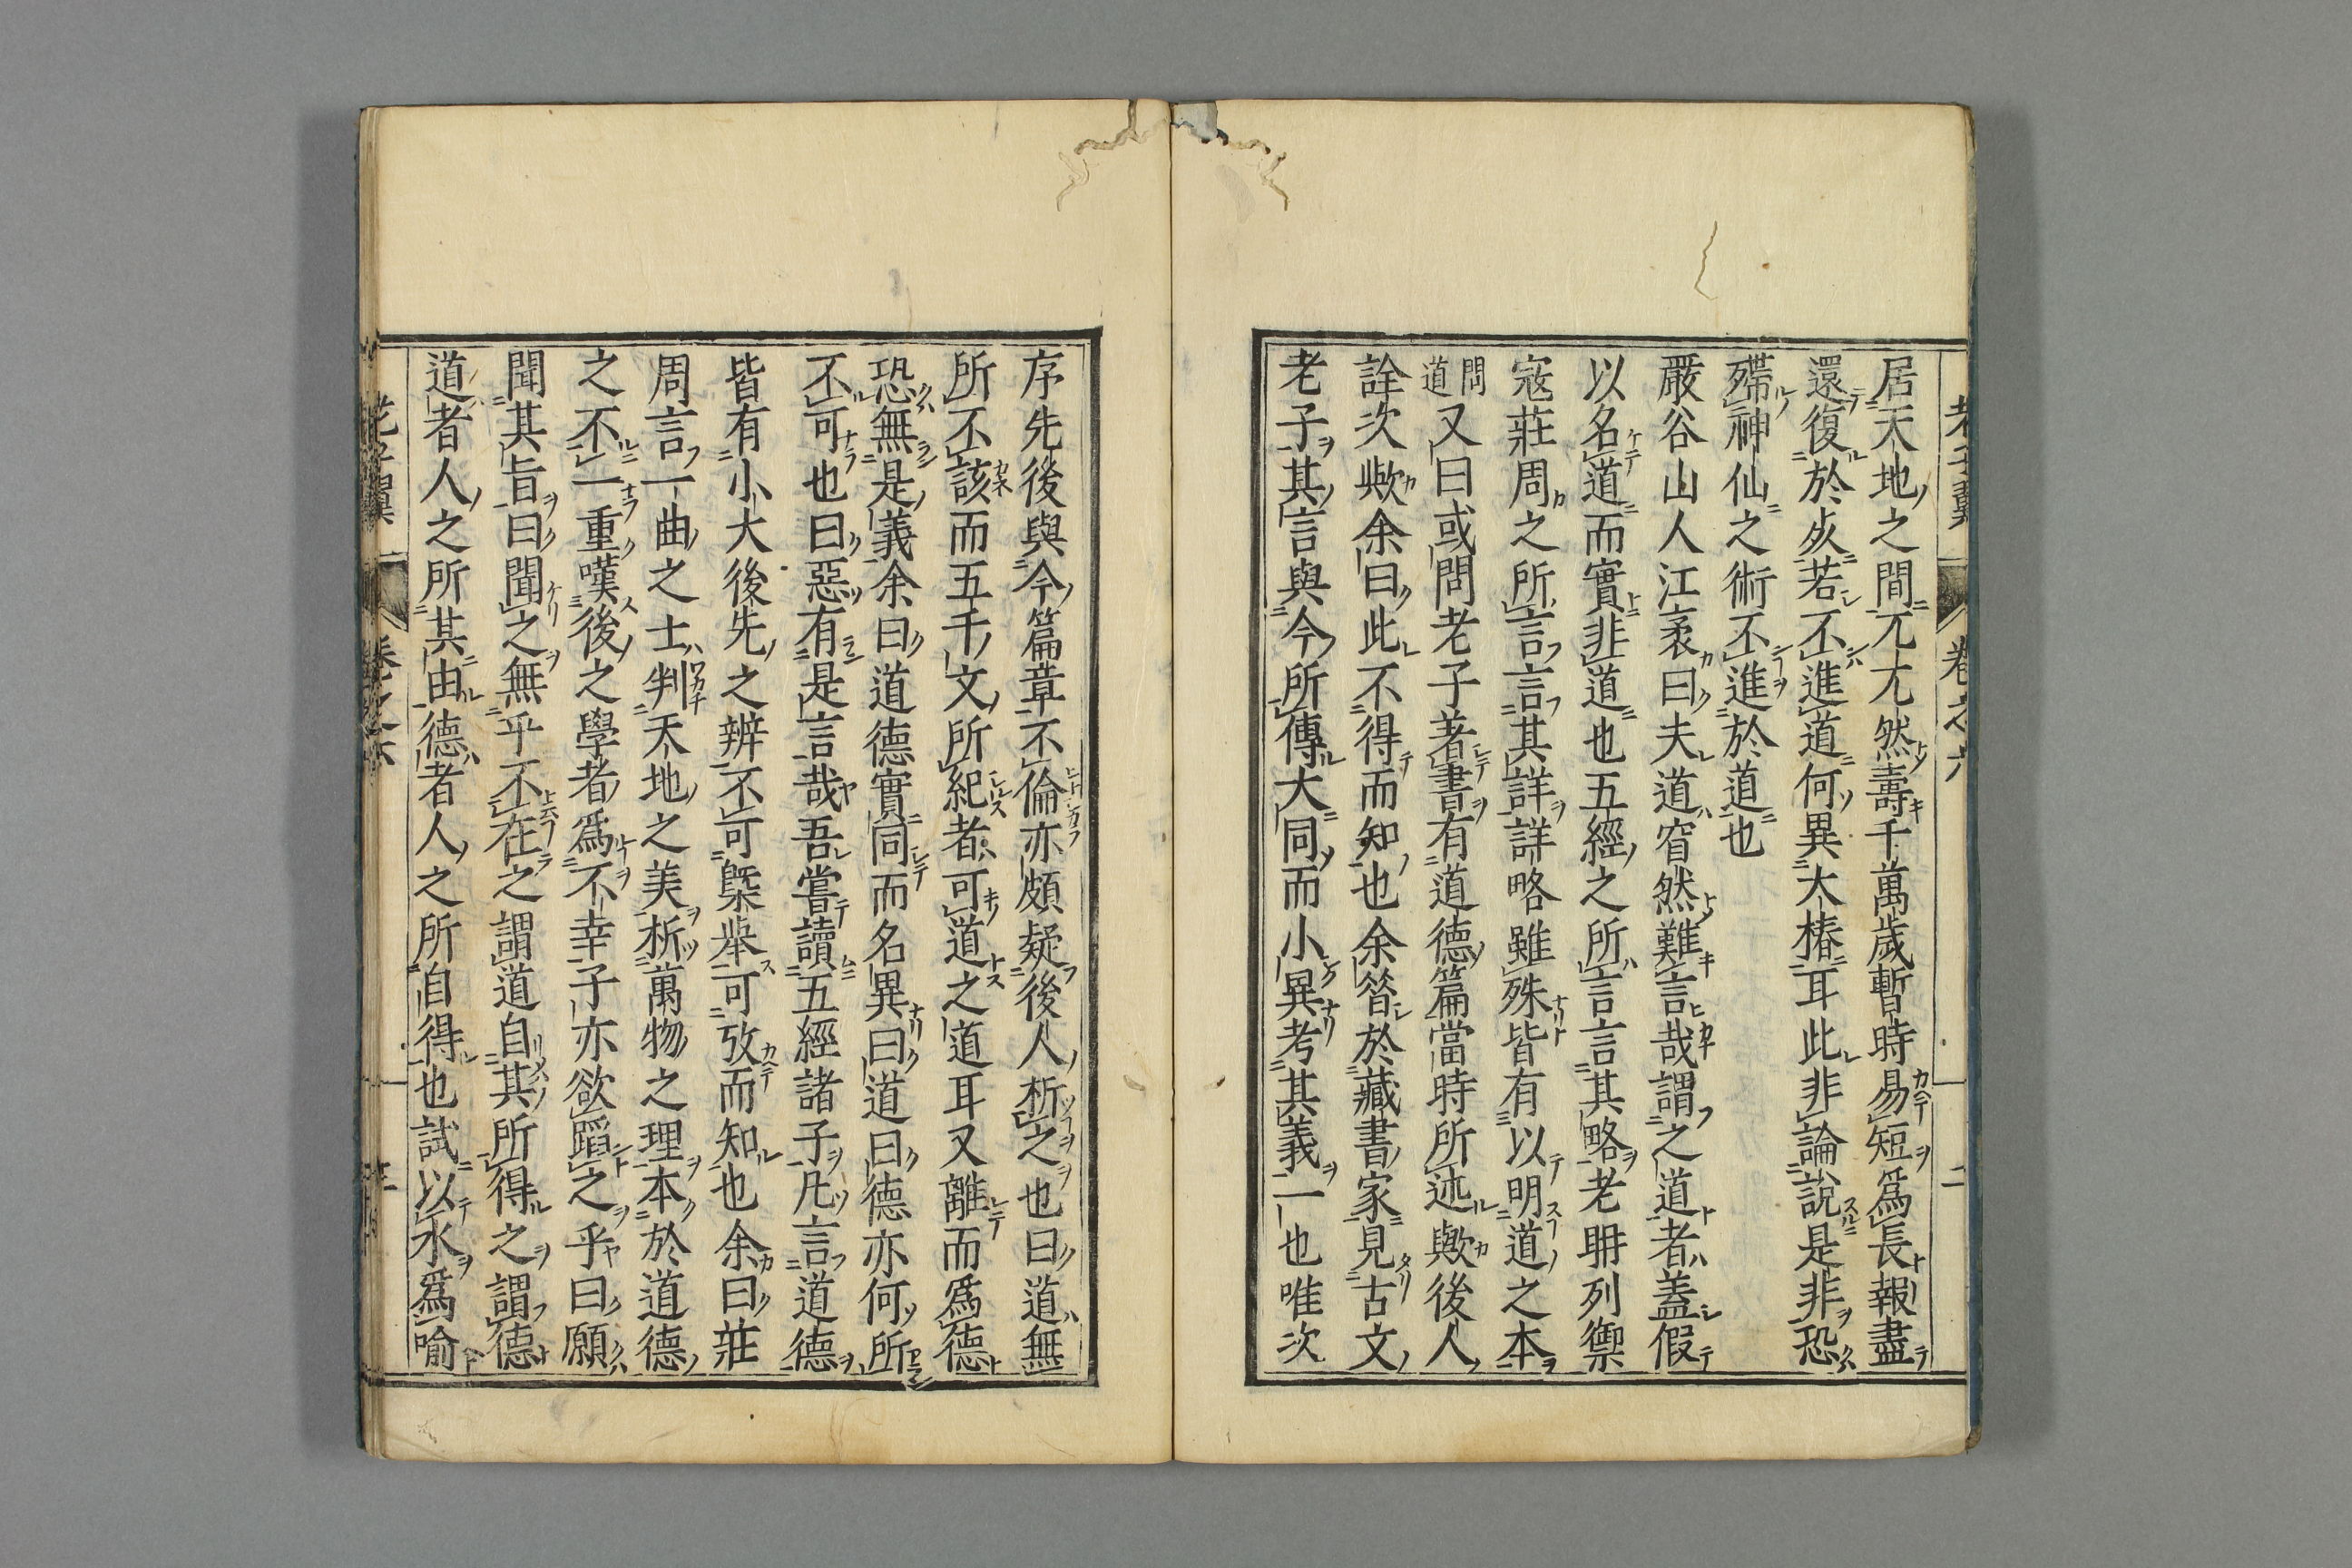 居天地之間兀兀然壽千萬歲暫時易短爲長報盡
還復於死若不進道何異大椿耳此非論說是非恐
殢神仙之術不進於道也
嚴谷山人江袤曰夫道窅然難言哉謂之道者蓋假
以名道而實非道也五經之所言言其略老𠕋列禦
寇莊周之所言言其詳詳略雖殊皆有以明道之本
問道又曰或問老子著書有道德篇當時所述歟後人
詮次歟余曰此不得而知也余昝於藏書家見古文
老子其言與今所傳大同而小異考其義一也唯次
序先後與今篇章不倫亦頗疑後人析之也曰道無
所不該而五千文所紀者可道之道耳又離而爲德
恐無是義余曰道德實同而名異曰道曰德亦何所
不可也曰惡有是言哉吾嘗讀五經諸子凡言道德
皆有小大後先之辨不可槩舉可攷而知也余曰莊
周言一曲之士判天地之美析萬物之理本於道德
之不一重嘆後之學者爲不幸子亦欲蹈之乎曰願
聞其旨曰聞之無乎不在之謂道自其所得之謂德
道者人之所共由德者人之所自得也試以水爲喻
老子翼
卷之六
二